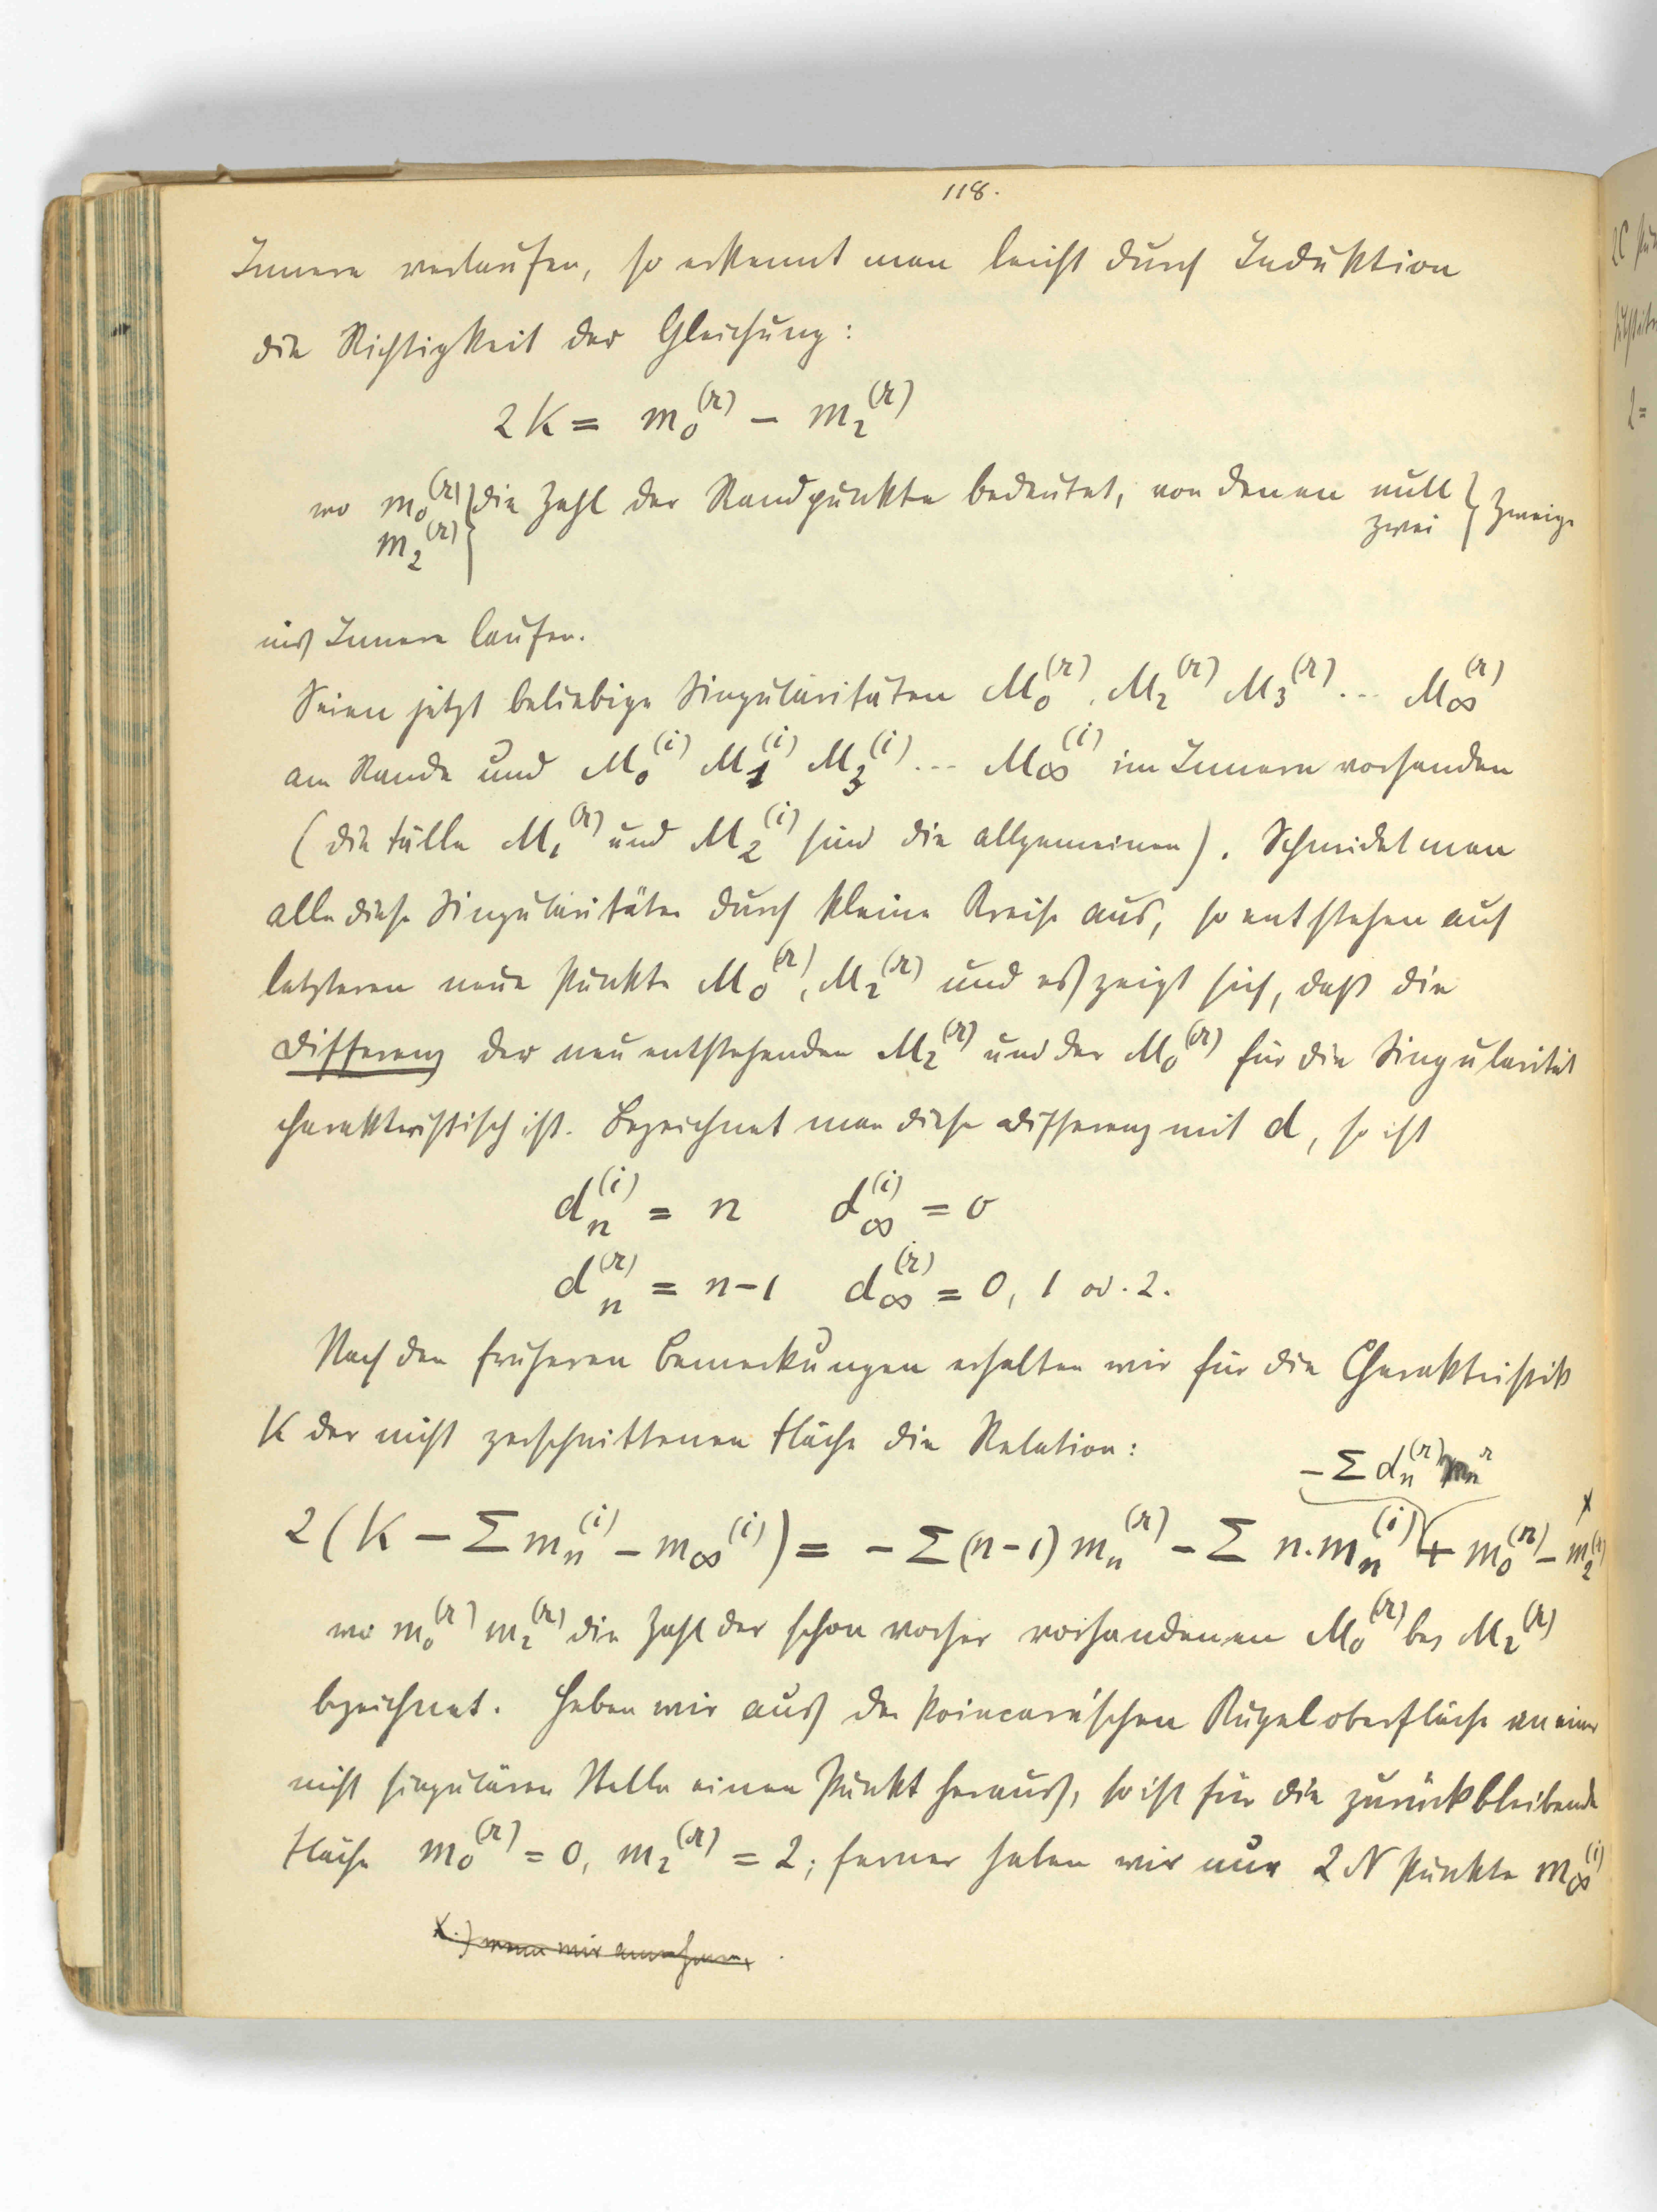 118.
Innere verlaufen, so erkennt man leicht durch Induktion
die Richtigkeit der Gleichung:
2K = m₀⁽ʳ⁾ − m₂⁽ʳ⁾
wo m₀⁽ʳ⁾ } die Zahl der Randpunkte bedeutet, von denen null } Zweige
m₂⁽ʳ⁾ } zwei }
ins Innere laufen.
Seien jetzt beliebige Singularitäten M₀⁽ʳ⁾, M₂⁽ʳ⁾ M₃⁽ʳ⁾ ... M∞⁽ʳ⁾
am Rande und M₀⁽ⁱ⁾ M₁⁽ⁱ⁾ M₃⁽ⁱ⁾ ... M∞⁽ⁱ⁾ im Innern vorhanden
(die Fälle M₁⁽ʳ⁾ und M₂⁽ⁱ⁾ sind die allgemeinen). Schneidet man
alle diese Singularitäten durch kleine Kreise aus, so entstehen auf
letzteren neue Punkte M₀⁽ʳ⁾, M₂⁽ʳ⁾ und es zeigt sich, daß die
Differenz der neu entstehenden M₂⁽ʳ⁾ und der M₀⁽ʳ⁾ für die Singularität
charakteristisch ist. Bezeichnet man diese Differenz mit d, so ist
dₙ⁽ⁱ⁾ = n d∞⁽ⁱ⁾ = 0
dₙ⁽ʳ⁾ = n−1 d∞⁽ʳ⁾ = 0, 1 od. 2.
Nach den früheren Bemerkungen erhalten wir für die Charakteristik
K der nicht zerschnittenen Fläche die Relation:
− Σ dₙ⁽ʳ⁾ mₙʳ
2 (K − Σ mₙ⁽ⁱ⁾ − m∞⁽ⁱ⁾) = − Σ (n−1) mₙ⁽ʳ⁾ − Σ n.mₙ⁽ⁱ⁾ + m₀⁽ʳ⁾ − m₂⁽ʳ⁾ x
wo m₀⁽ʳ⁾ m₂⁽ʳ⁾ die Zahl der schon vorher vorhandenen M₀⁽ʳ⁾ bez M₂⁽ʳ⁾
bezeichnet. Heben wir aus der Poincaré'schen Kugeloberfläche an einer
nicht singulären Stelle einen Punkt heraus, so ist für die zurückbleibende
Fläche m₀⁽ʳ⁾ = 0, m₂⁽ʳ⁾ = 2; ferner haben wir nur 2N Punkte m∞⁽ⁱ⁾
x.) wenn wir annehmen